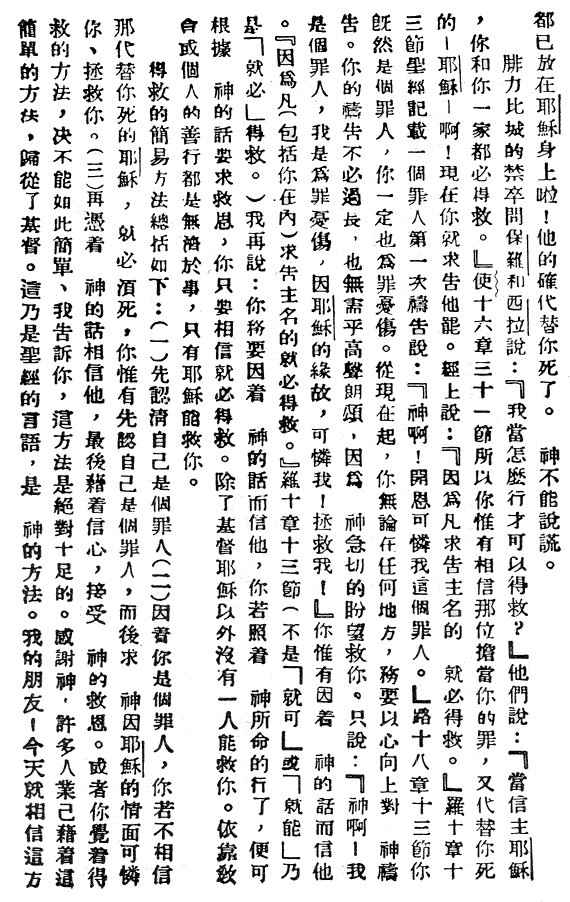 都已放在耶穌身上啦！他的確代替你死了。　神不能說謊。
腓力比城的禁卒問保羅和西拉說：『我當怎麼行才可以得救？』他們說：『當信主耶穌
，你和你一家都必得救。』使十六章三十一節所以你惟有相信那位擔當你的罪，又代替你死
的－耶穌－啊！現在你就求告他罷。經上說：『因爲凡求告主名的　就必得救。』羅十章十
三節聖經記載一個罪人第一次禱告說：『神啊！開恩可憐我這個罪人。』路十八章十三節你
旣然是個罪人，你一定也爲罪憂傷。從現在起，你無論在任何地方，務要以心向上對　神禱
告。你的禱告不必過長，也無需乎高聲朗頌，因爲　神急切的盼望救你。只說：『神啊！我
是個罪人，我是爲罪憂傷　因耶穌的緣故，可憐我！拯救我！』你惟有因着　神的話而信他
。『因爲凡（包括你在內）求告主名的就必得救。』羅十章十三節（不是「就可」或「就能」乃
是「就必」得救。）我再說：你務要因着　神的話而信他，你若照着　神所命的行了，便可
根據　神的話要求救恩，你只要相信就必得救。除了基督耶穌以外沒有一人能救你。依靠敎
會或個人的善行都是無濟於事，只有耶穌能救你。
得救的簡易方法總括如下：（一）先認淸自己是個罪人（二）因着你是個罪人，你若不相信
那代替你死的耶穌，就必須死，你惟有先認自己是個罪人，而後求　神因耶穌的情面可憐
你、拯救你。（三）再憑着　神的話相信他，最後藉着信心，接受　神的救恩。或者你覺着得
救的方法，决不能如此簡單、我告訴你，這方法是絕對十足的。感謝神，許多人業已藉着這
簡單的方法，歸從了基督。這乃是聖經的言語，是　神的方法。我的朋友！今天就相信這方